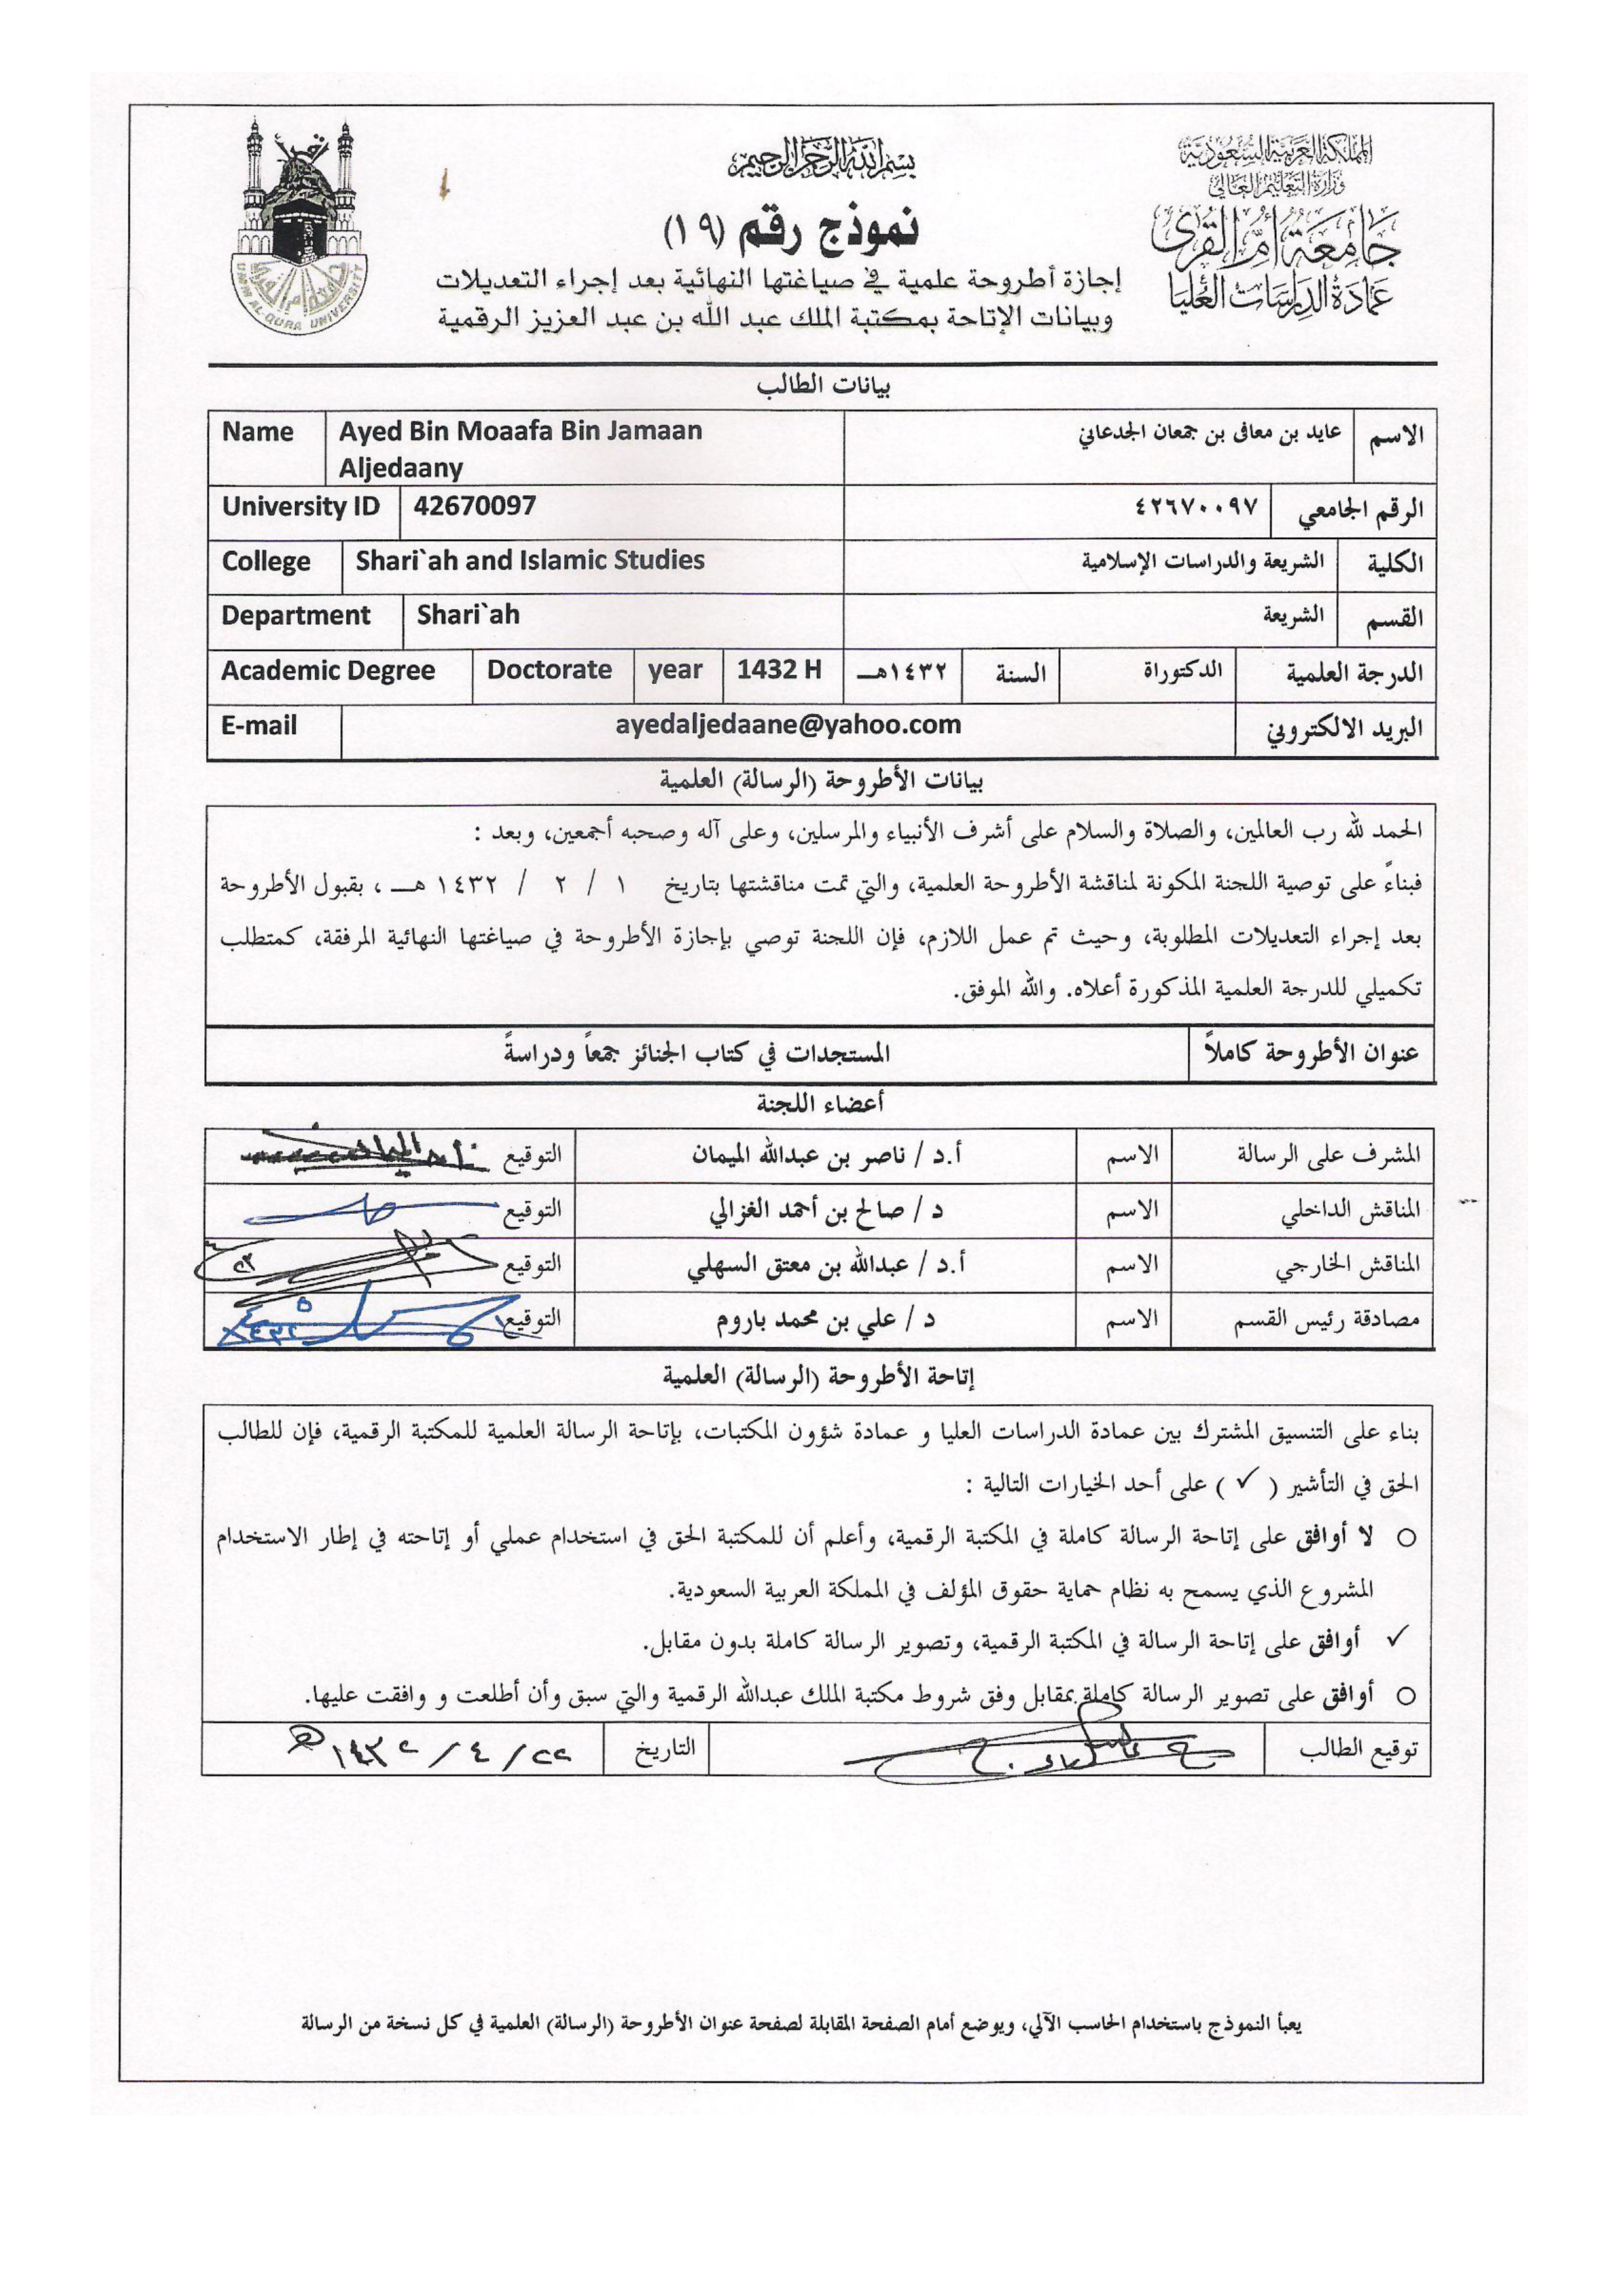 المملكة العربية السعودية
وزارة التعليم العالي
جامعة أم القرى
عمادة الدراسات العليا
بسم الله الرحمن الرحيم
نموذج رقم (١٩)
إجازة أطروحة علمية في صياغتها النهائية بعد إجراء التعديلات
وبيانات الإتاحة بمكتبة الملك عبد الله بن عبد العزيز الرقمية
UMM AL-QURA UNIVERSITY
بيانات الطالب
الاسم عايد بن معافى بن جمعان الجدعاني Ayed Bin Moaafa Bin Jamaan Name
Aljedaany
الرقم الجامعي ٤٢٦٧٠٠٩٧ 42670097 University ID
الكلية الشريعة والدراسات الإسلامية Shari`ah and Islamic Studies College
القسم الشريعة Shari`ah Department
الدرجة العلمية الدكتوراة السنة ١٤٣٢هـ 1432 H year Doctorate Academic Degree
البريد الالكتروني ayedaljedaane@yahoo.com E-mail
بيانات الأطروحة (الرسالة) العلمية
الحمد لله رب العالمين، والصلاة والسلام على أشرف الأنبياء والمرسلين، وعلى آله وصحبه أجمعين، وبعد :
فبناءً على توصية اللجنة المكونة لمناقشة الأطروحة العلمية، والتي تمت مناقشتها بتاريخ ١ / ٢ / ١٤٣٢ هـ ، بقبول الأطروحة
بعد إجراء التعديلات المطلوبة، وحيث تم عمل اللازم، فإن اللجنة توصي بإجازة الأطروحة في صياغتها النهائية المرفقة، كمتطلب
تكميلي للدرجة العلمية المذكورة أعلاه. والله الموفق.
عنوان الأطروحة كاملاً المستجدات في كتاب الجنائز جمعاً ودراسةً
أعضاء اللجنة
المشرف على الرسالة الاسم أ.د / ناصر بن عبدالله الميمان التوقيع
المناقش الداخلي الاسم د / صالح بن أحمد الغزالي التوقيع
المناقش الخارجي الاسم أ.د / عبدالله بن معتق السهلي التوقيع
مصادقة رئيس القسم الاسم د / علي بن محمد باروم التوقيع
إتاحة الأطروحة (الرسالة) العلمية
بناء على التنسيق المشترك بين عمادة الدراسات العليا و عمادة شؤون المكتبات، بإتاحة الرسالة العلمية للمكتبة الرقمية، فإن للطالب
الحق في التأشير ( ✓ ) على أحد الخيارات التالية :
○ لا أوافق على إتاحة الرسالة كاملة في المكتبة الرقمية، وأعلم أن للمكتبة الحق في استخدام عملي أو إتاحته في إطار الاستخدام
المشروع الذي يسمح به نظام حماية حقوق المؤلف في المملكة العربية السعودية.
✓ أوافق على إتاحة الرسالة في المكتبة الرقمية، وتصوير الرسالة كاملة بدون مقابل.
○ أوافق على تصوير الرسالة كاملة بمقابل وفق شروط مكتبة الملك عبدالله الرقمية والتي سبق وأن أطلعت و وافقت عليها.
توقيع الطالب التاريخ ٢٢ / ٤ / ١٤٣٢هـ
يعبأ النموذج باستخدام الحاسب الآلي، ويوضع أمام الصفحة المقابلة لصفحة عنوان الأطروحة (الرسالة) العلمية في كل نسخة من الرسالة